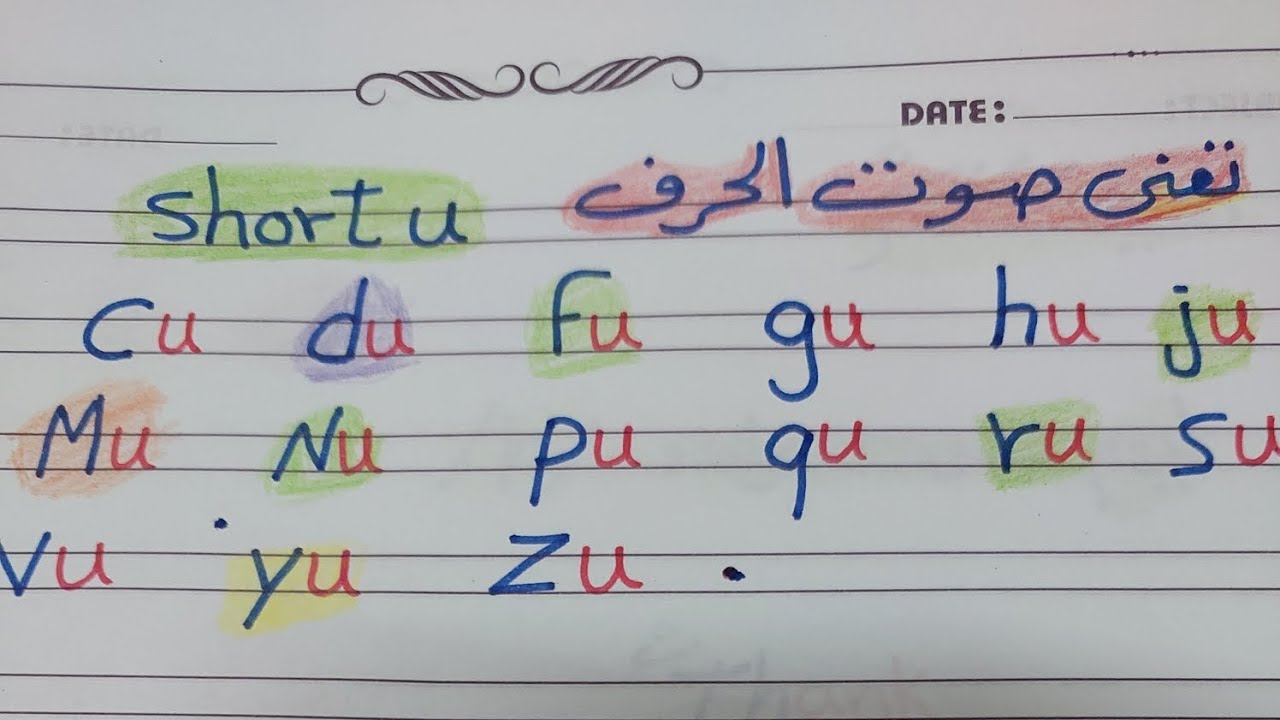 DATE:
short u تعنى صوت الحرف
Cu du Fu gu hu ju
Mu Nu pu qu ru su
Vu yu Zu .